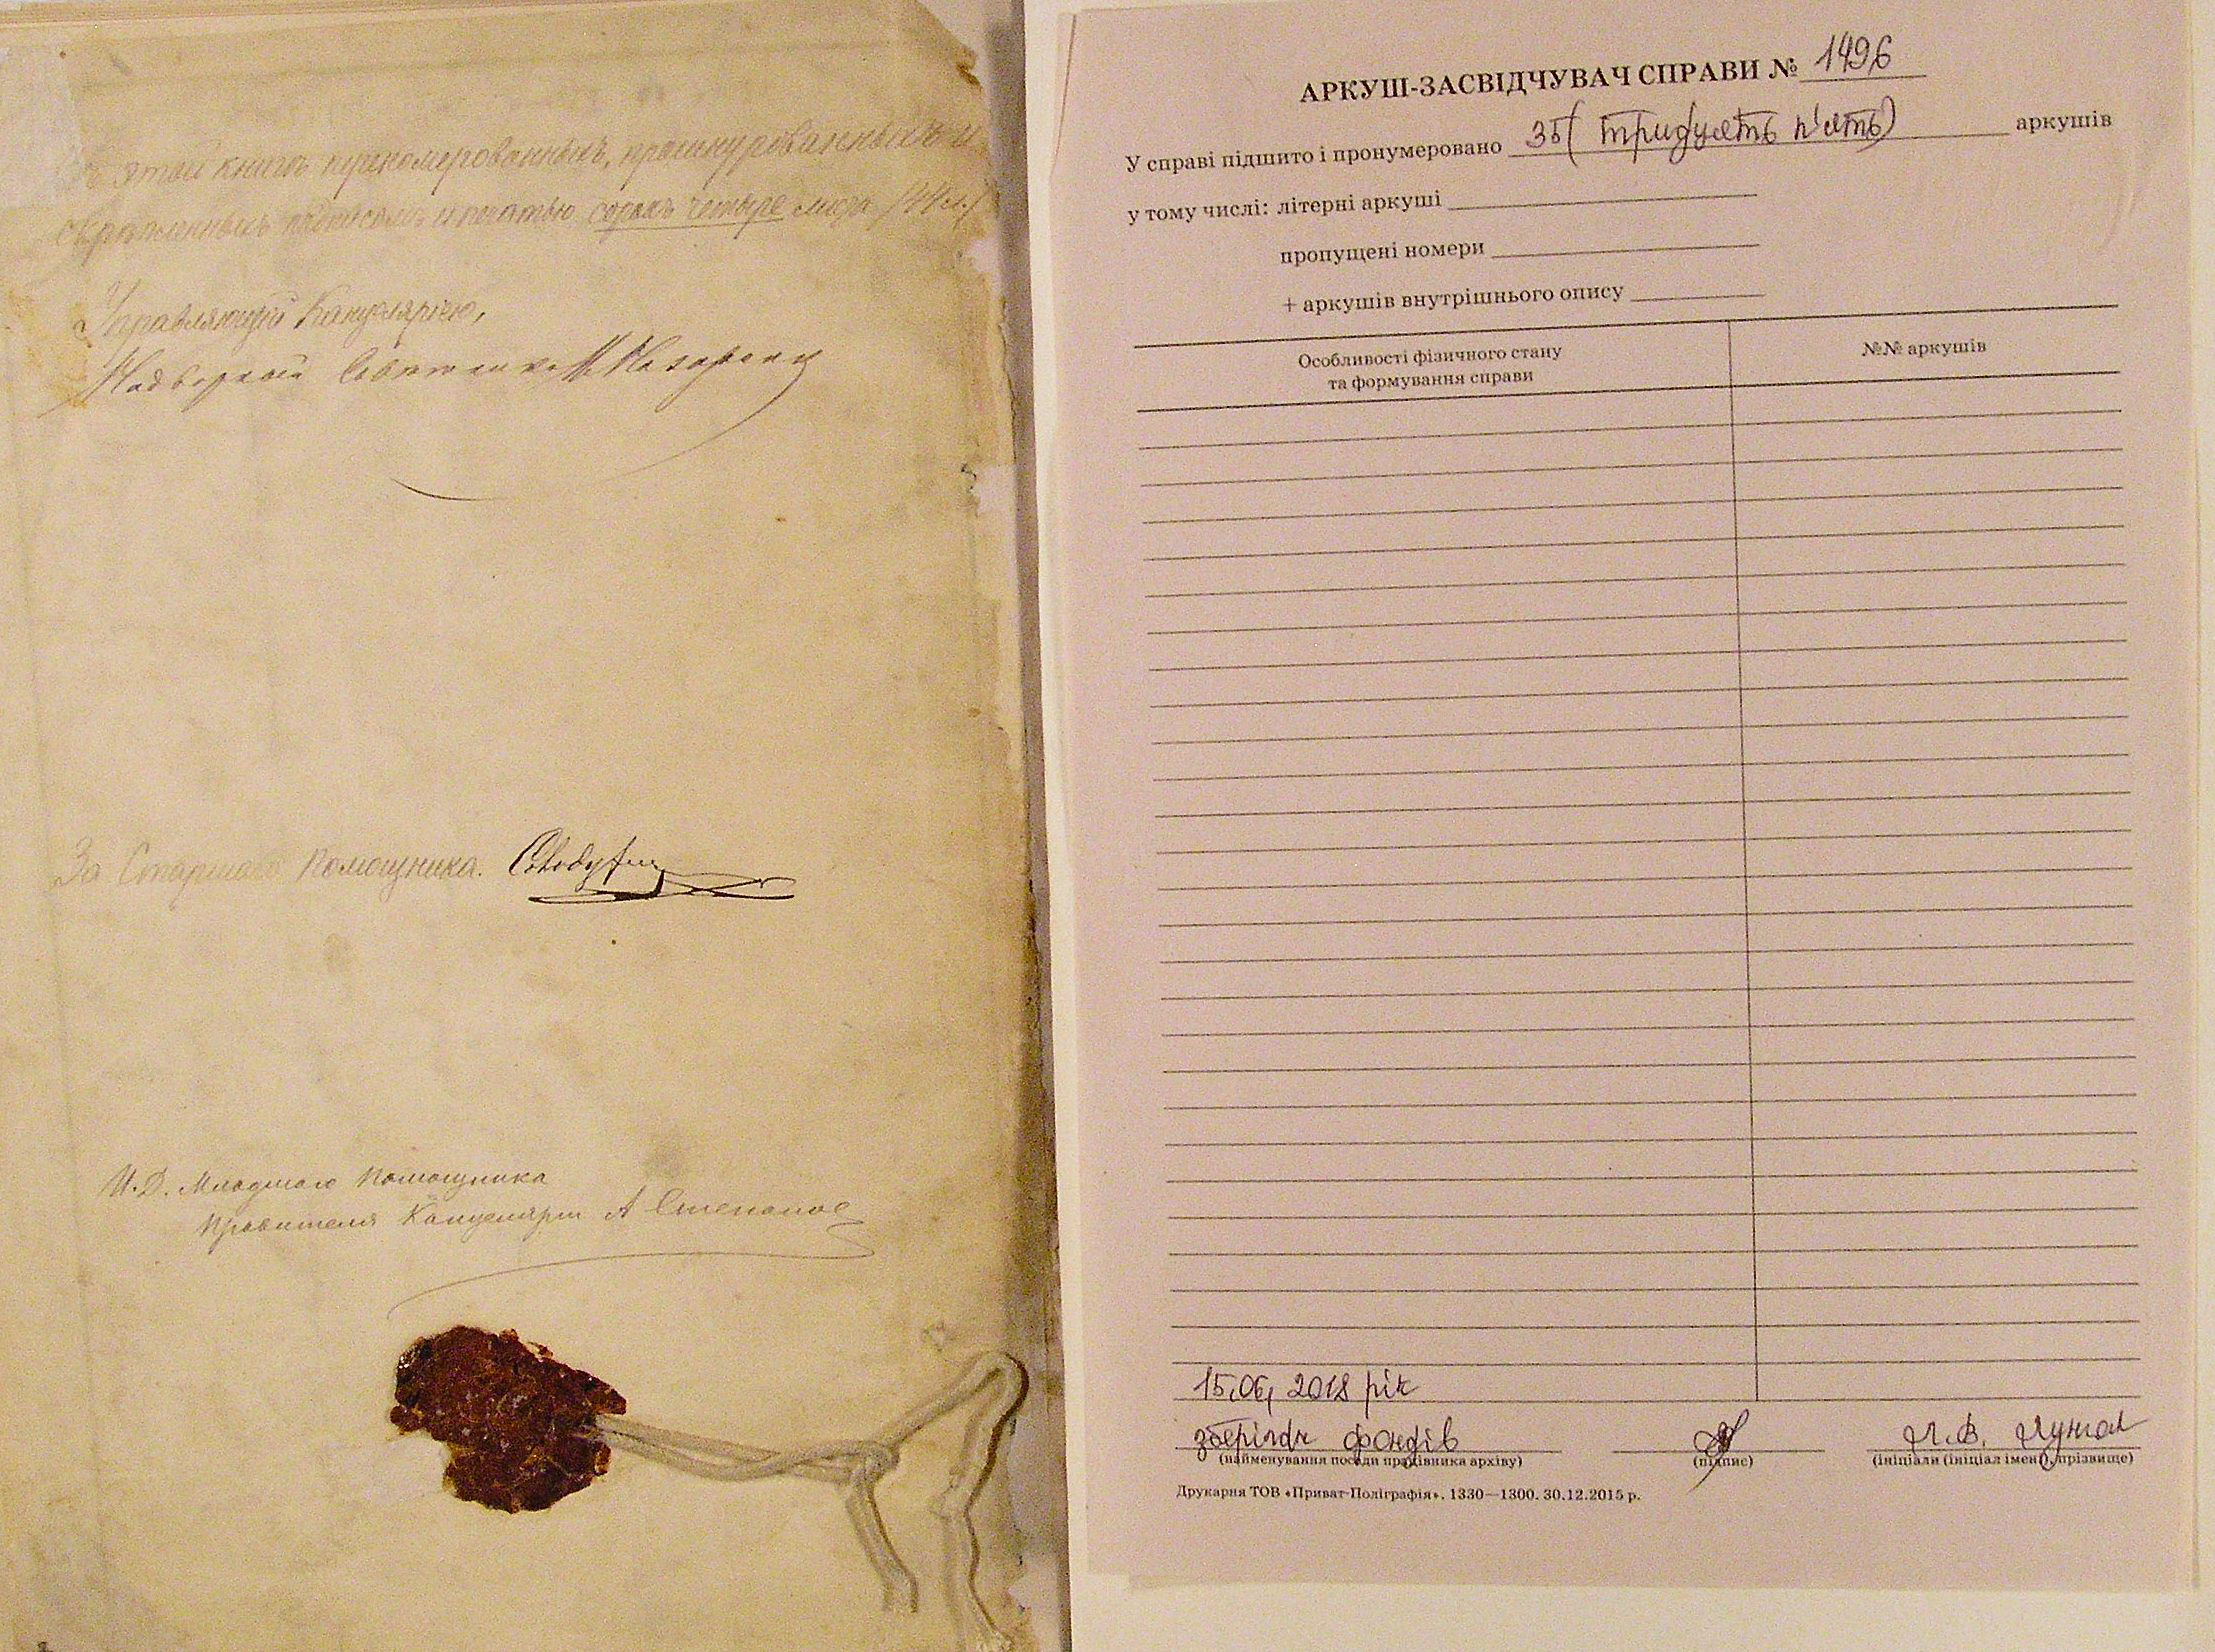 этой книгѣ пронумерованныхъ, прошнурованныхъ и
скрѣпленныхъ подписомъ и печатью сорокъ четыре листа /44 л./
Управляющій Канцеляріею,
Надворный Совѣтникъ
За Старшаго Помощника.
И.Д. Младшаго Помощника
Правителя Канцеляріи А Степанов
АРКУШ-ЗАСВІДЧУВАЧ СПРАВИ № 1496
У справі підшито і пронумеровано 35 (тридцять п'ять) аркушів
у тому числі: літерні аркуші
пропущені номери
+ аркушів внутрішнього опису
Особливості фізичного стану
та формування справи
№№ аркушів
15.06. 2018 рік
зберігач фондів
Л.В.
(найменування посади працівника архіву)
(підпис)
(ініціали (ініціал імені), прізвище)
Друкарня ТОВ «Приват-Поліграфія». 1330—1300. 30.12.2015 р.